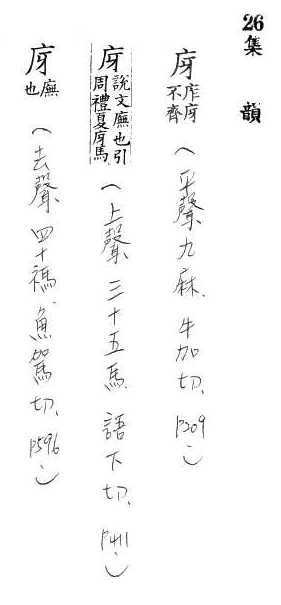 26集韻
庌 庌厏不齊（平聲九麻、牛加切、P209）
庌 說文廡也引周禮夏庌馬（上聲三十五馬、語下切、P411）
庌 廡也（去聲四十禡、魚駕切、P596）